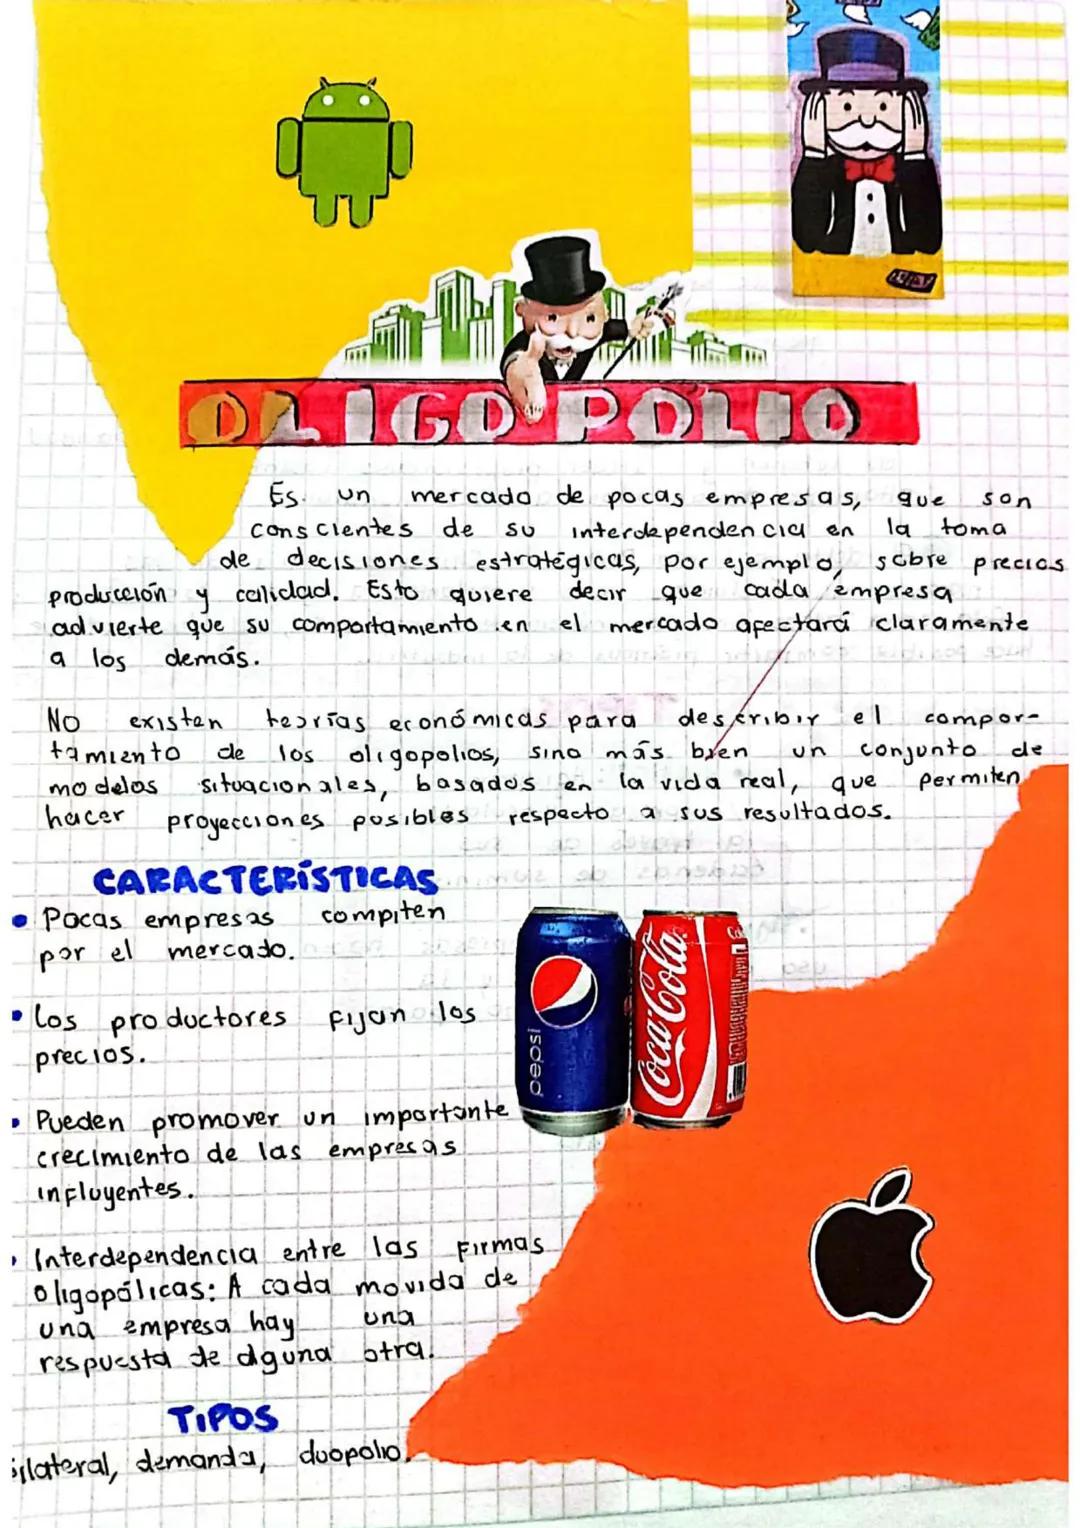 OLIGOPOLIO
Es un mercado de pocas empresas, que son
conscientes de su interdependencia en la toma
de decisiones estratégicas, por ejemplo, sobre precios
producción y calidad. Esto quiere decir que cada empresa
advierte que su comportamiento en el mercado afectará claramente
a los demás.
No existen teorías económicas para describir el compor-
tamiento de los oligopolios, sino más bien un conjunto de
modelos situacionales, basados en la vida real, que permiten
hacer proyecciones posibles respecto a sus resultados.
CARACTERÍSTICAS
• Pocas empresas compiten
por el mercado.
• Los productores fijan los
precios.
• Pueden promover un importante
crecimiento de las empresas
influyentes.
• Interdependencia entre las firmas
oligopólicas: A cada movida de
una empresa hay una
respuesta de alguna otra.
pepsi
Coca-Cola
TIPOS
Bilateral, demanda, duopolio.